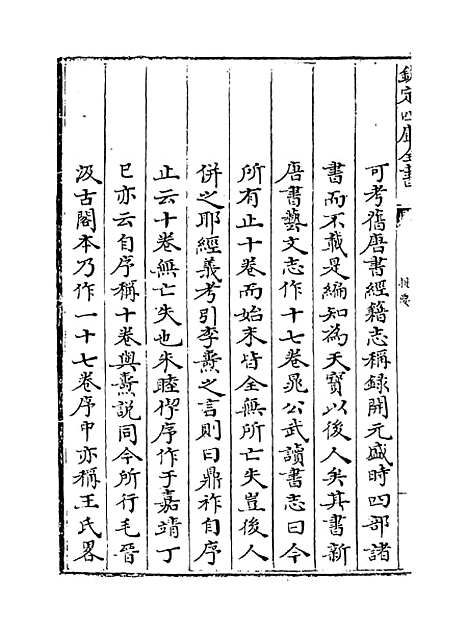 欽定四庫全書
提要
可考舊唐書經籍志稱録開元盛時四部諸
書而不載是編知為天寶以後人矣其書新
唐書藝文志作十七卷晁公武讀書志曰今
所有止十卷而始末皆全無所亡失豈後人
併之耶經義考引李燾之言則曰鼎祚自序
止云十卷無亡失也朱睦㮮序作于嘉靖丁
巳亦云自序稱十卷與燾説同今所行毛晉
汲古閣本乃作一十七卷序中亦稱王氏畧